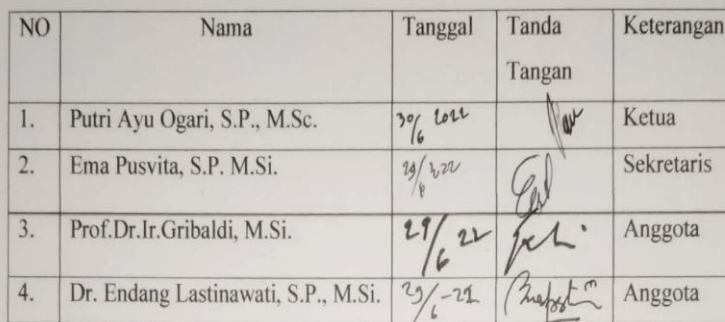 NO Nama Tanggal Tanda Tangan Keterangan
1. Putri Ayu Ogari, S.P., M.Sc. 30/6 2022 Ketua
2. Ema Pusvita, S.P. M.Si. Sekretaris
3. Prof.Dr.Ir.Gribaldi, M.Si. 29/6 22 Anggota
4. Dr. Endang Lastinawati, S.P., M.Si. Anggota